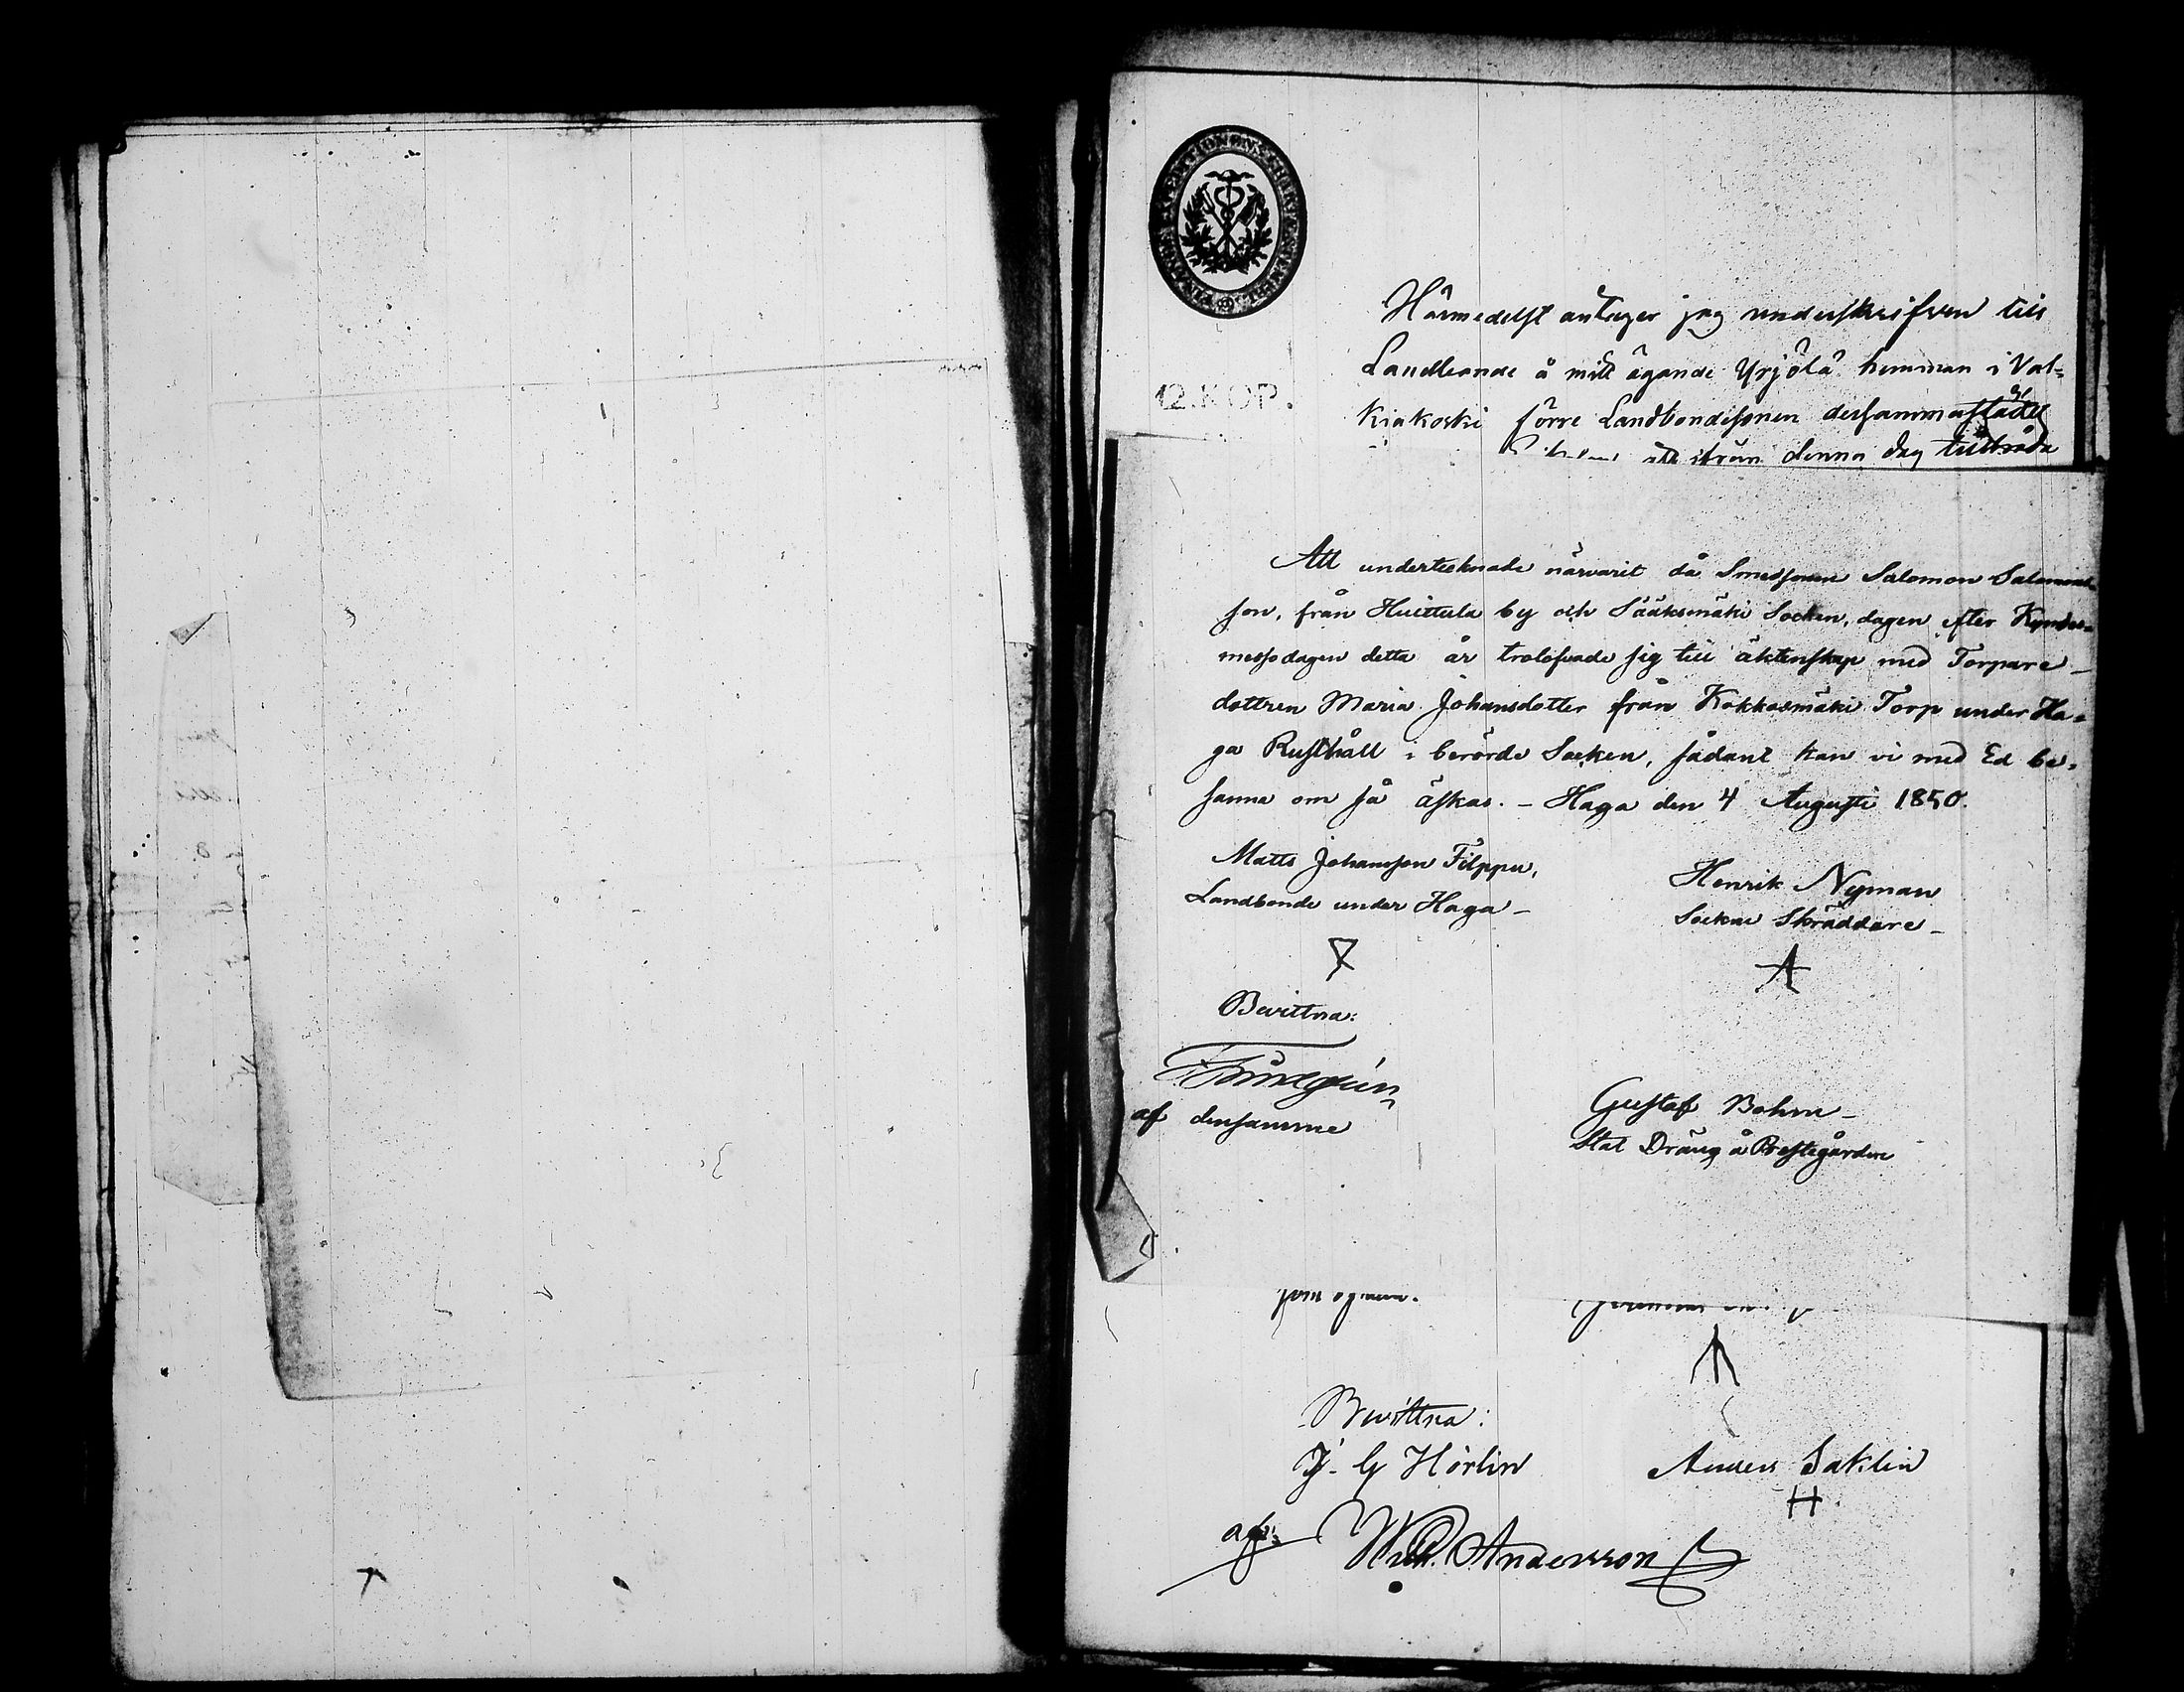 12.KOP.
Härmedelst antager jag underskrifven till
Landbonde å mitt ägande Yrjölä hemman i Val-
kiakoski förre Landbondesonen dersammastädes
att ifrån denna dag tillträda
Att undertecknade närvarit då Smedsonen Salomon Salomons-
son, från Huittula by och Sääksmäki Socken, dagen efter Kyndel-
messodagen detta år trolofvade sig till äktenskap med Torpare-
dottren Maria Johansdotter från Kokkosmäki Torp under Ha-
ga Rusthåll i berörde Socken, sådant kan vi med Ed be-
sanna om så äskas. - Haga den 4 Augusti 1850.
Matts Johansson Filppu,
Landbonde under Haga -
Henrik Nyman
Socken Skräddare -
Bevittna:
af densamme
Gustaf Bohm -
Stat Dräng å Prestegården
som ofvan.
Bevittna:
J. G Hörlin
Anders Saklin
H
Wilh. Andersson